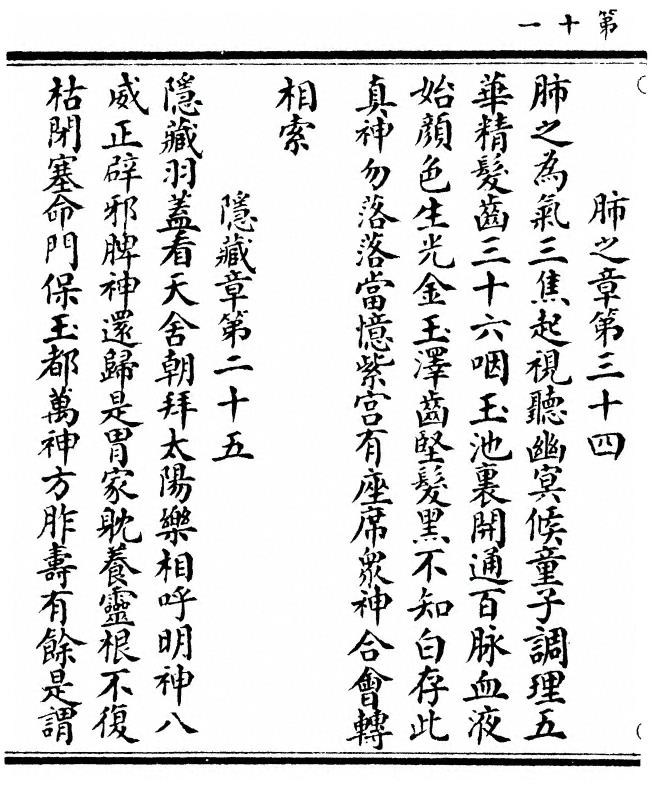 第十一
肺之章第三十四
肺之為氣三焦起視聽幽冥候童子調理五
華精髮齒三十六咽玉池裏開通百脉血液
始顔色生光金玉澤齒堅髮黑不知白存此
真神勿落落當憶紫宮有座席衆神合會轉
相索
隱藏章第二十五
隱藏羽蓋看天舍朝拜太陽樂相呼明神八
威正辟邪脾神還歸是胃家耽養靈根不復
枯閉塞命門保玉都萬神方胙壽有餘是謂